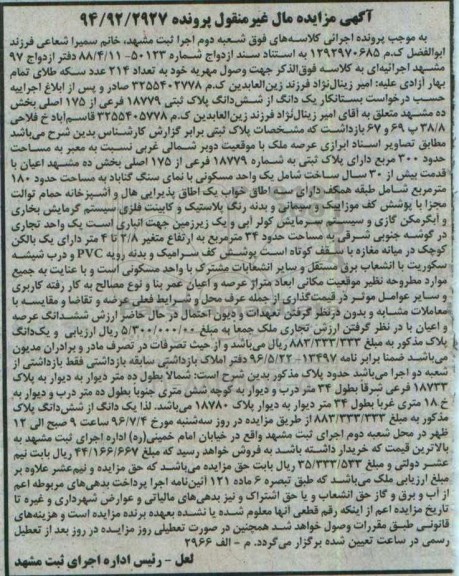 آگهی مزایده مال غیرمنقول پرونده ۹۴/۹۲/۲۹۲۷
به موجب پرونده اجرائی کلاسه‌های فوق شعبه دوم اجرا ثبت مشهد، خانم سمیرا شعاعی فرزند
ابوالفضل ک.م ۱۲۹۲۹۷۰۶۸۵ به استناد سند ازدواج شماره ۵۰۱۲۳-۸۸/۴/۱۱ دفتر ازدواج ۹۷
مشهد اجرائیه‌ای به کلاسه فوق‌الذکر جهت وصول مهریه خود به تعداد ۳۱۴ عدد سکه طلای تمام
بهار آزادی علیه: امیر زینال‌نژاد فرزند زین‌العابدین ک.م ۳۲۵۵۴۰۲۷۷۸ صادر و پس از ابلاغ اجراییه
حسب درخواست بستانکار یک دانگ از شش‌دانگ پلاک ثبتی ۱۸۷۷۹ فرعی از ۱۷۵ اصلی بخش
ده مشهد متعلق به آقای امیر زینال‌نژاد فرزند زین‌العابدین ک.م ۳۲۵۵۴۰۵۷۷۸ قاسم‌آباد خ فلاحی
۳۸/۸ پ ۶۹ و ۶۷ بازداشت که مشخصات پلاک ثبتی برابر گزارش کارشناس بدین شرح می‌باشد
مطابق تصاویر اسناد ابرازی عرصه ملک با موقعیت دوبر شمالی غربی نسبت به معبر به مساحت
حدود ۳۰۰ مربع دارای پلاک ثبتی به شماره ۱۸۷۷۹ فرعی از ۱۷۵ اصلی بخش ده مشهد اعیان با
قدمت بیش از ۳۰ سال ساخت شامل یک واحد مسکونی با نمای سنگ گناباد به مساحت حدود ۱۸۰
مترمربع شامل طبقه همکف دارای سه اطاق خواب یک اطاق پذیرایی هال و آشپزخانه حمام توالت
مجزا با پوشش کف موزاییک و سیمانی و بدنه رنگ پلاستیک و کابینت فلزی سیستم گرمایش بخاری
و آبگرمکن گازی و سیستم سرمایش کولر آبی و یک زیرزمین جهت انباری است یک واحد تجاری
در گوشه جنوبی شرقی به مساحت حدود ۳۴ مترمربع به ارتفاع متغیر ۲/۸ تا ۴ متر دارای یک بالکن
کوچک در میانه مغازه با سقف کوتاه است پوشش کف سرامیک و بدنه رویه PVC و درب شیشه
سکوریت با انشعاب برق مستقل و سایر انشعابات مشترک با واحد مسکونی است و با عنایت به جمیع
موارد مطروحه نظیر موقعیت مکانی ابعاد متراژ عرصه و اعیان عمر بنا و نوع مصالح به کار رفته کاربری
و سایر عوامل موثر در قیمت‌گذاری از جمله عرف محل و شرایط فعلی عرضه و تقاضا و مقایسه با
معاملات مشابه و بدون درنظر گرفتن تعهدات و دیون احتمال در حال حاضر ارزش ششدانگ عرصه
و اعیان با در نظر گرفتن ارزش تجاری ملک جمعا به مبلغ ۵/۳۰۰/۰۰۰/۰۰۰ ریال ارزیابی و یک‌دانگ
پلاک مذکور به مبلغ ۸۸۳/۳۳۳/۳۳۳ ریال می‌باشد و از حیث تصرفات در تصرف مادر و برادران مدیون
می‌باشد ضمنا برابر نامه ۱۳۴۹۷-۹۶/۵/۲۲ دفتر املاک بازداشتی سابقه بازداشتی فقط بازداشتی از
شعبه دو اجرا می‌باشد حدود پلاک مذکور بدین شرح است: شمالا بطول ده متر دیوار به دیوار به پلاک
۱۸۷۳۳ فرعی شرقا بطول ۳۴ متر درب و دیوار به کوچه شش متری جنوبا بطول ده متر درب و دیوار به
خ ۱۸ متری غربا بطول ۳۴ متر دیوار به دیوار پلاک ۱۸۷۸۰ می‌باشد. لذا یک دانگ از شش‌دانگ پلاک
مذکور به مبلغ ۸۸۳/۳۳۳/۳۳۳ از طریق مزایده در روز سه‌شنبه مورخ ۹۶/۷/۴ ساعت ۹ صبح الی ۱۲
ظهر در محل شعبه دوم اجرای ثبت مشهد واقع در خیابان امام خمینی(ره) اداره اجرای ثبت مشهد به
بالاترین قیمت که خریدار داشته باشد به فروش خواهد رسید که مبلغ ۴۴/۱۶۶/۶۶۷ ریال بابت نیم
عشر دولتی و مبلغ ۳۵/۳۳۳/۵۳۳ ریال بابت حق مزایده می‌باشد که حق مزایده و نیم‌عشر علاوه بر
مبلغ ارزیابی ملک می‌باشد که طبق تبصره ۶ ماده ۱۲۱ آئین‌نامه اجرا پرداخت بدهی‌های مربوطه اعم
از آب و برق و گاز حق انشعاب و یا حق اشتراک و نیز بدهی‌های مالیاتی و عوارض شهرداری و غیره تا
تاریخ مزایده اعم از اینکه رقم قطعی آنها معلوم شده یا نشده بعهده برنده مزایده است و هزینه‌های
قانونی طبق مقررات وصول خواهد شد همچنین در صورت تعطیلی روز مزایده در روز بعد از تعطیل
رسمی در ساعت تعیین شده برگزار می‌گردد. م - الف ۲۹۶۶
لعل - رئیس اداره اجرای ثبت مشهد